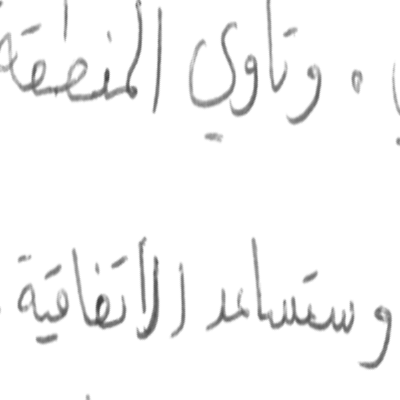 . وتاوي المنطقة
وستساعد الاتفاقية